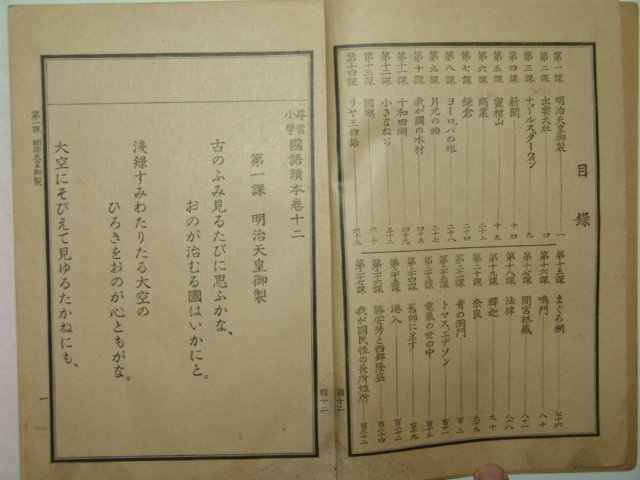 目録
第一課 明治天皇御製 一
第二課 出雲大社 四
第三課 チャールスダーウィン 九
第四課 新聞 十四
第五課 蜜柑山 十九
第六課 商業 二十二
第七課 鎌倉
第八課 ヨーロッパの旅 二十八
第九課 月光の曲 三十七
第十課 我が國の木材 四十四
第十一課 十和田湖 四十九
第十二課 小さなねぢ 五十三
第十三課 國旗 六十
第十四課 リヤ王物語 六十五
第十五課 まぐろ網 七十六
第十六課 鳴門 八十
第十七課 間宮林藏 八十一
第十八課 法律 八十八
第十九課 釋迦 九十
第二十課 奈良 九十九
第二十一課 青の洞門 百三
第二十二課 トマスエヂソン 百十一
第二十三課 電氣の世の中 百十五
第二十四課 舊師に呈す 百十九
第二十五課 港入 百二十二
第二十六課 勝安芳と西郷隆盛 百二十四
第二十七課 我が國民性の長所短所 百三十二
國十二
國十二
尋常小學國語讀本卷十二
第一課 明治天皇御製
古のふみ見るたびに思ふかな、
おのが治むる國はいかにと。
淺緑すみわたりたる大空の
ひろきをおのが心ともがな。
大空にそびえて見ゆるたかねにも、
第一課 明治天皇御製
一